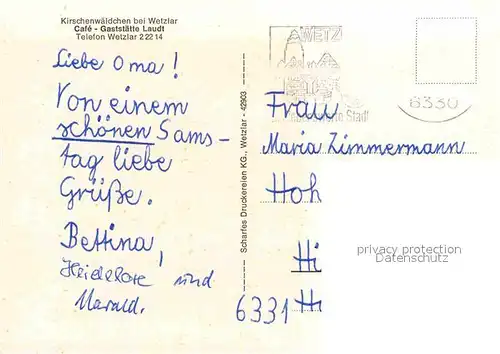 Kirschenwäldchen bei Wetzlar
Café - Gaststätte Laudt
Telefon Wetzlar 2 22 14
Liebe Oma!
Von einem
schönen Sams-
tag liebe
Grüße.
Bettina,
Heidelore und
Harald.
Scharfes Druckereien KG., Wetzlar - 42903
WETZ
Stadt
6330
Frau
Maria Zimmermann
Hoh
Hi
6331 H
privacy protection
Datenschutz